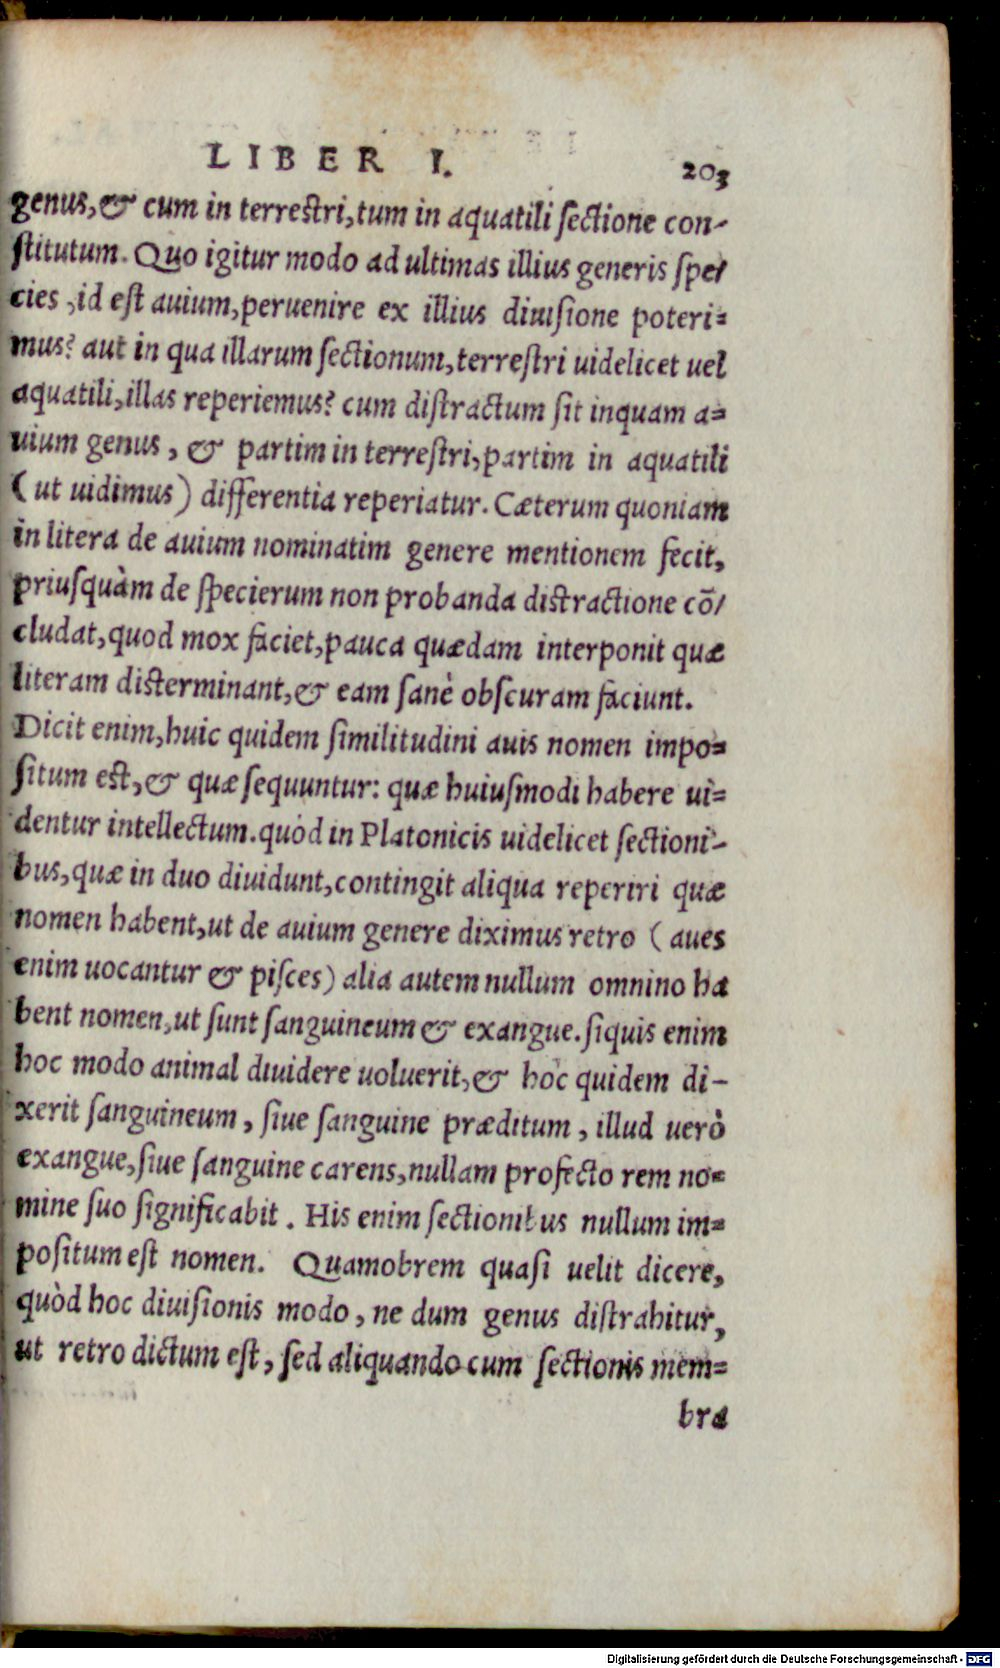 LIBER I. 203
genus, & cum in terrestri, tum in aquatili sectione con-
stitutum. Quo igitur modo ad ultimas illius generis spe/
cies, id est auium, peruenire ex illius diuisione poteri=
mus? aut in qua illarum sectionum, terrestri uidelicet uel
aquatili, illas reperiemus? cum distractum sit inquam a=
uium genus, & partim in terrestri, partim in aquatili
(ut uidimus) differentia reperiatur. Cæterum quoniam
in litera de auium nominatim genere mentionem fecit,
priusquàm de specierum non probanda distractione cō/
cludat, quod mox faciet, pauca quædam interponit quæ
literam disterminant, & eam sanè obscuram faciunt.
Dicit enim, huic quidem similitudini auis nomen impo=
situm est, & quæ sequuntur: quæ huiusmodi habere ui=
dentur intellectum. quòd in Platonicis uidelicet sectioni-
bus, quæ in duo diuidunt, contingit aliqua reperiri quæ
nomen habent, ut de auium genere diximus retro (aues
enim uocantur & pisces) alia autem nullum omnino ha
bent nomen, ut sunt sanguineum & exangue. siquis enim
hoc modo animal diuidere uoluerit, & hoc quidem di-
xerit sanguineum, siue sanguine præditum, illud uerò
exangue, siue sanguine carens, nullam profecto rem no=
mine suo significabit. His enim sectionibus nullum im=
positum est nomen. Quamobrem quasi uelit dicere,
quòd hoc diuisionis modo, ne dum genus distrahitur,
ut retro dictum est, sed aliquando cum sectionis mem=
bra
Digitalisierung gefördert durch die Deutsche Forschungsgemeinschaft - DFG